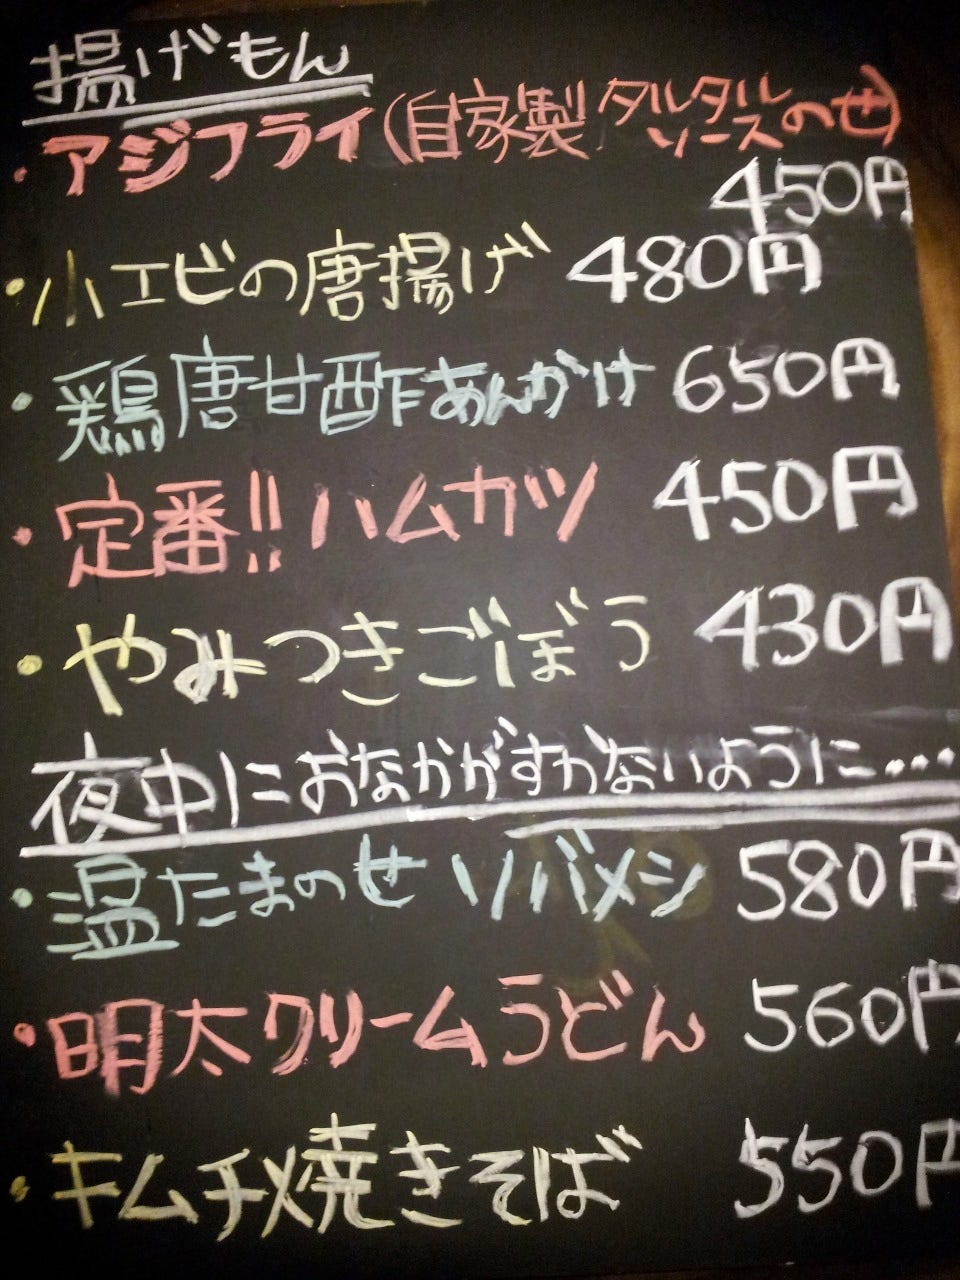 揚げもん
・アジフライ(自家製タルタルソースのせ)
450円
・小エビの唐揚げ 480円
・鶏唐甘酢あんかけ 650円
・定番!!ハムカツ 450円
・やみつきごぼう 430円
夜中におなかがすかないように...
・温たまのせソバメシ 580円
・明太クリームうどん 560円
・キムチ焼きそば 550円